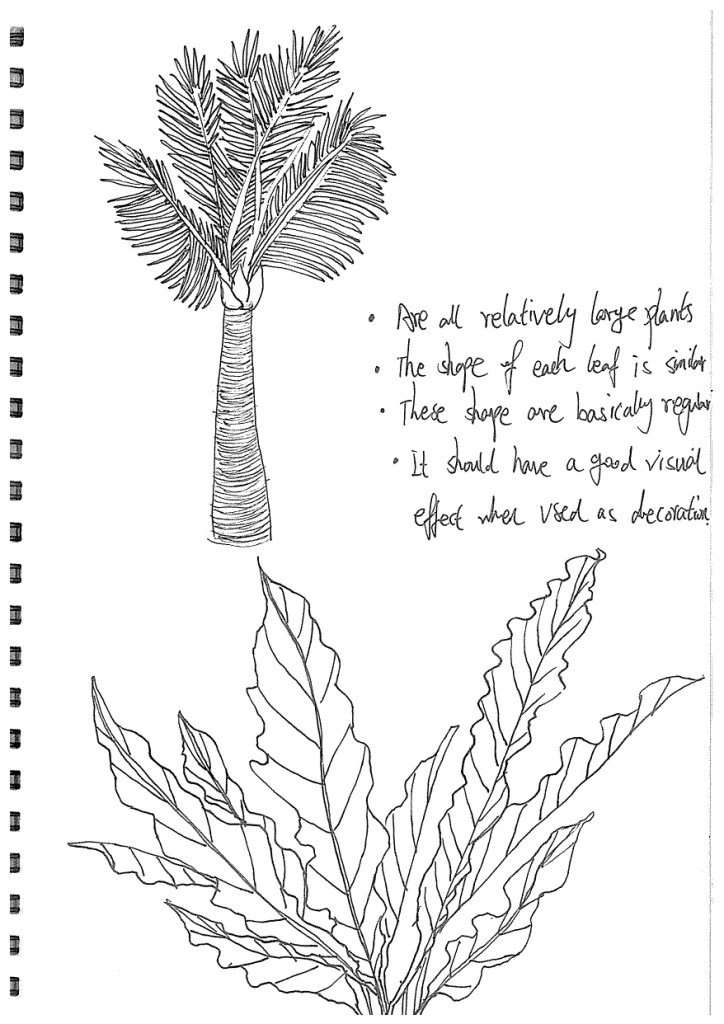 • Are all relatively large plants
• The shape of each leaf is similar
• These shape are basically regular
• It should have a good visual
effect when used as decoration.